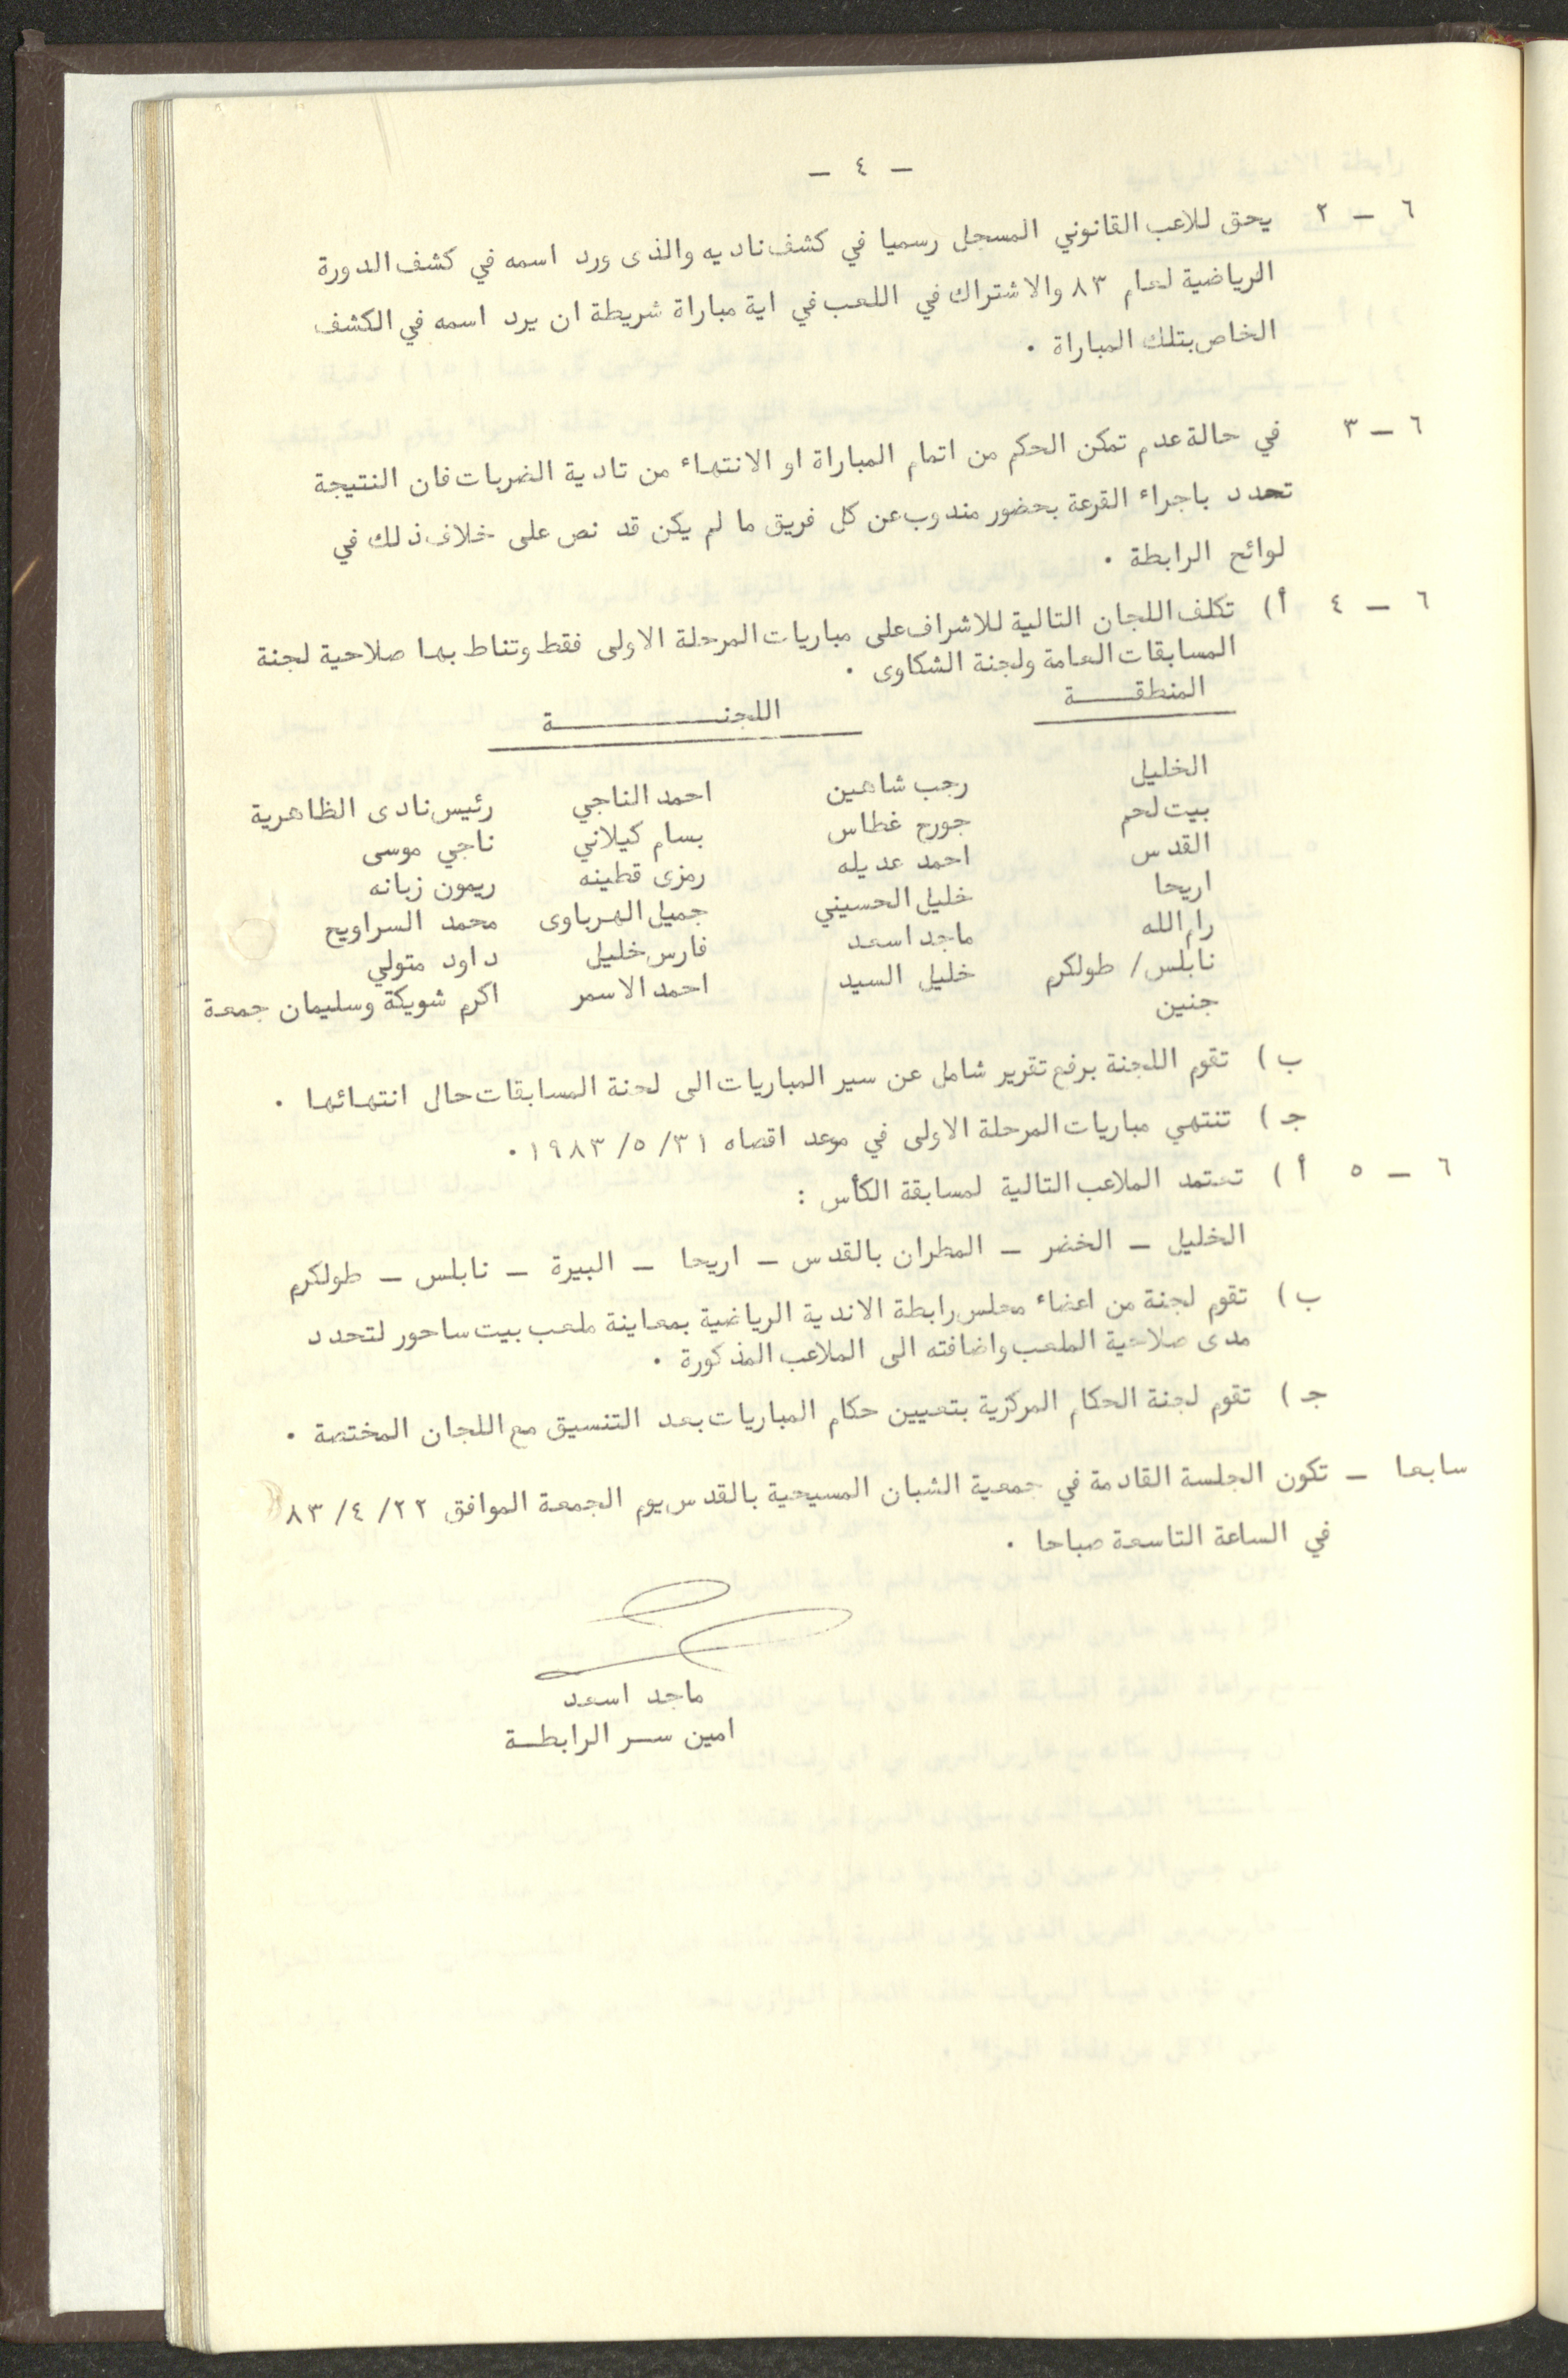 - ٤ -
٦ - ٢ يحق للاعب القانوني المسجل رسميا في كشف ناديه والذى ورد اسمه في كشف الدورة
الرياضية لعام ٨٣ والاشتراك في اللعب في اية مباراة شريطة ان يرد اسمه في الكشف
الخاص بتلك المباراة .
٦ - ٣ في حالة عدم تمكن الحكم من اتمام المباراة او الانتهاء من تادية الضربات فان النتيجة
تحدد باجراء القرعة بحضور مندوب عن كل فريق ما لم يكن قد نص على خلاف ذلك في
لوائح الرابطة .
٦ - ٤ أ) تكلف اللجان التالية للاشراف على مباريات المرحلة الاولى فقط وتناط بها صلاحية لجنة
المسابقات العامة ولجنة الشكاوى .
المنطقة اللجنة
الخليل رجب شاهين احمد الناجي رئيس نادى الظاهرية
بيت لحم جورج غطاس بسام كيلاني ناجي موسى
القدس احمد عديله رمزى قطينه ريمون زبانه
اريحا خليل الحسيني جميل الهرباوى محمد السراويح
رام الله ماجد اسعد فارس خليل داود متولي
نابلس/ طولكرم خليل السيد احمد الاسمر اكرم شويكة وسليمان جمعة
جنين
ب) تقوم اللجنة برفع تقرير شامل عن سير المباريات الى لجنة المسابقات حال انتهائها .
جـ) تنتهي مباريات المرحلة الاولى في موعد اقصاه ٣١/ ٥/ ١٩٨٣ .
٦ - ٥ أ) تعتمد الملاعب التالية لمسابقة الكأس :
الخليل - الخضر - المطران بالقدس - اريحا - البيرة - نابلس - طولكرم
ب) تقوم لجنة من اعضاء مجلس رابطة الاندية الرياضية بمعاينة ملعب بيت ساحور لتحدد
مدى صلاحية الملعب واضافته الى الملاعب المذكورة .
جـ) تقوم لجنة الحكام المركزية بتعيين حكام المباريات بعد التنسيق مع اللجان المختصة .
سابعا - تكون الجلسة القادمة في جمعية الشبان المسيحية بالقدس يوم الجمعة الموافق ٢٢/ ٤/ ٨٣
في الساعة التاسعة صباحا .
ماجد اسعد
امين سر الرابطة